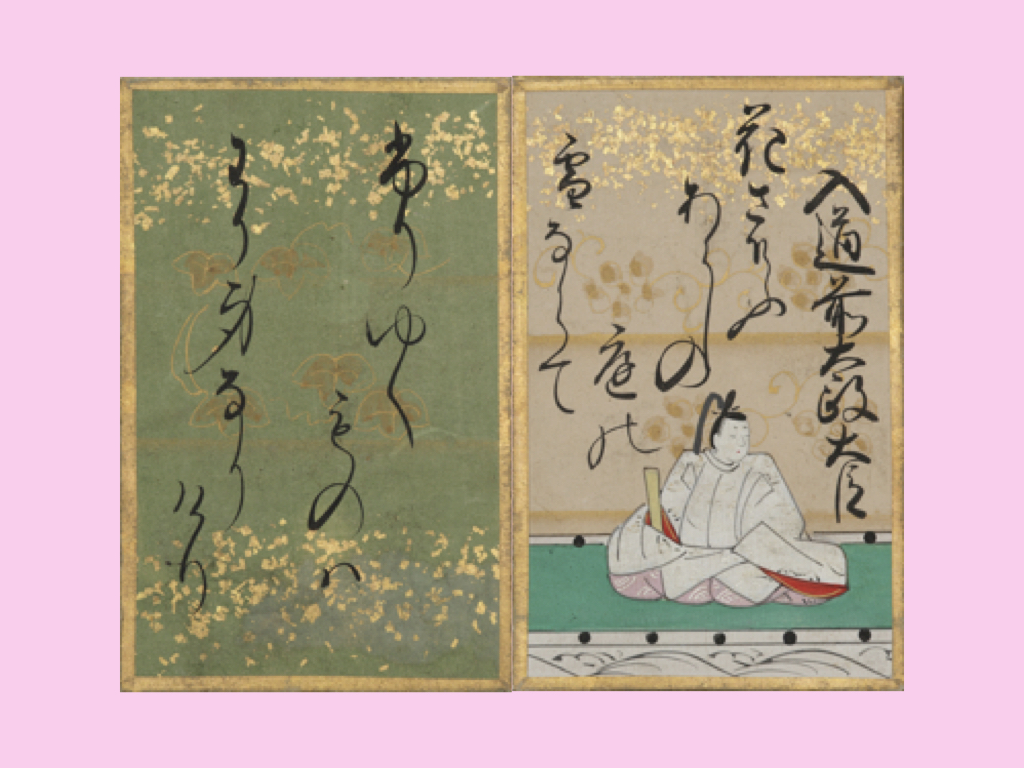 入道前太政大臣
花さそふ
あらしの
庭の
雪ならて
ふりゆく
ものは
わか身なり
けり